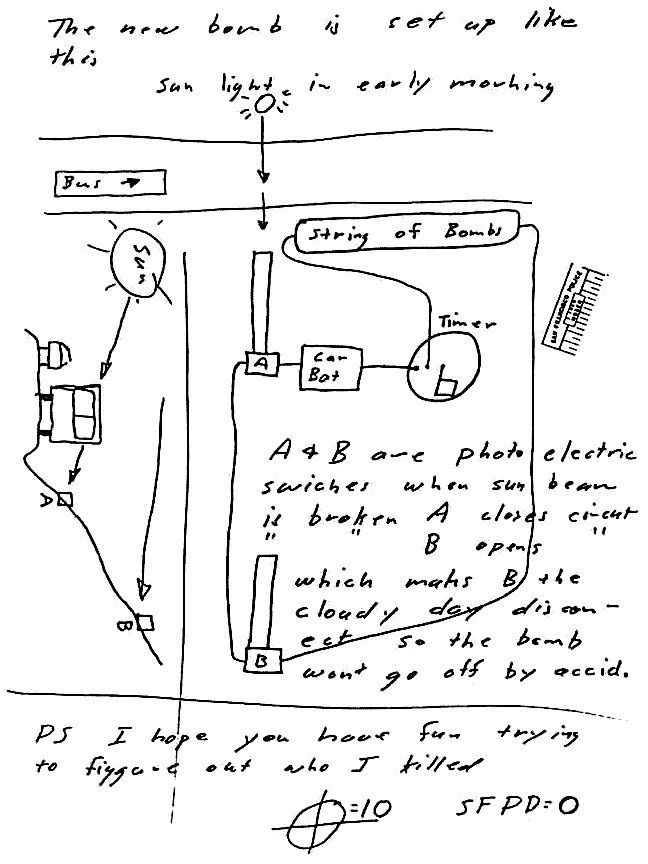 The new bomb is set up like
this
sun light in early morning
Bus →
String of Bombs
Sun
Timer
A
Car
Bat
SAN FRANCISCO POLICE
A
B
A & B are photo electric
swiches when sun beam
is broken A closes circut
" " B opens
which maks B the
cloudy day discon-
ect so the bomb
wont go off by accid.
B
PS I hope you have fun trying
to figgure out who I killed
=10 SFPD=0